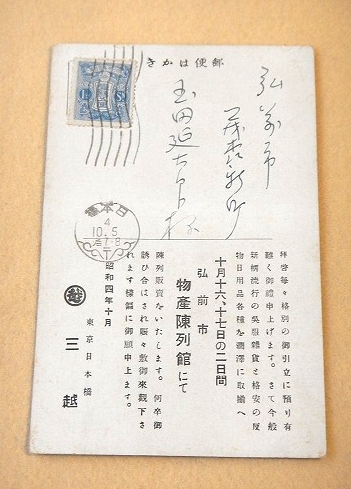 郵便はかき
弘前市
玉田延太郎様
日本橋
4
10.5
拜啓毎々格別の御引立に預り有
難く御禮申上げます。さて今般
新柄流行の吳服雜貨と格安の反
物日用品各種を潤澤に取揃へ
十月十六、十七日の二日間
弘前市
物產陳列館にて
陳列販賣をいたします。何卒御
誘ひ合はされ賑々敷御來觀下さ
れます樣偏に御願申上ます。
昭和四年十月
東京日本橋
三越